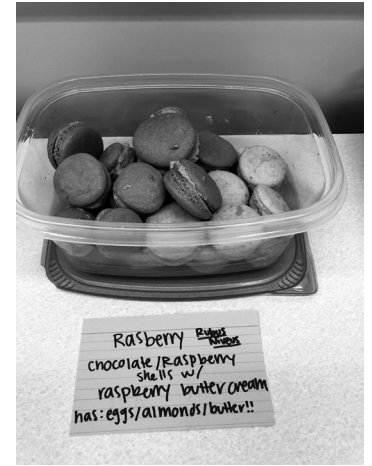 Rasberry Rubus
Niveus
chocolate/Raspberry
shells w/
raspberry butter cream
has: eggs/almonds/butter!!